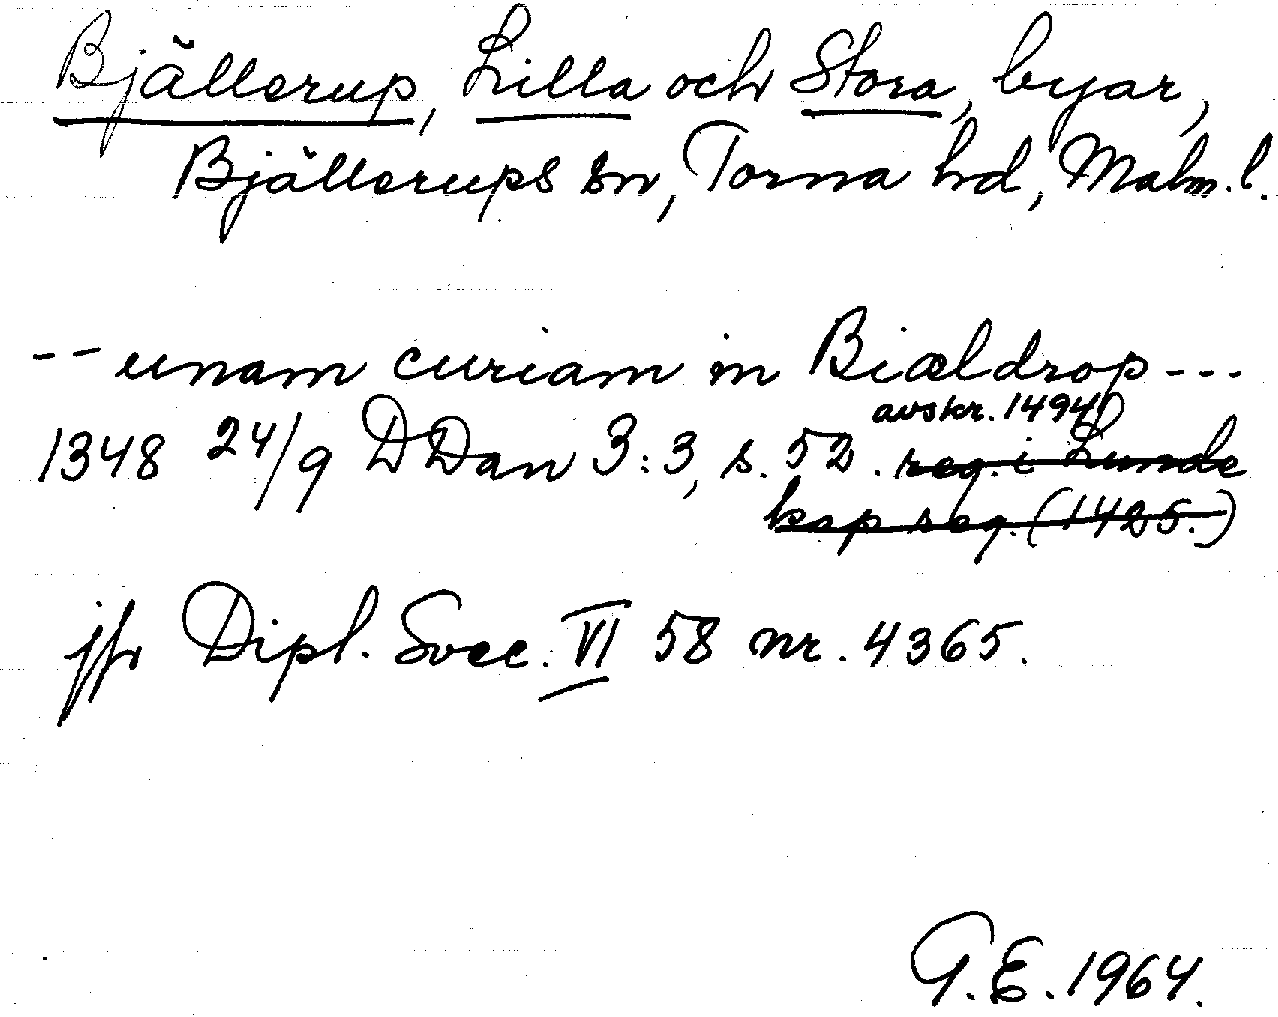 Bjällerup, Lilla och Stora, byar,
Bjällerups sn, Torna hd, Malm. l.
-- unam curiam in Biældrop ---
avskr. 1494
1348 24/9 DDan 3:3, s. 52. reg. i Lunde
kap reg. (1425.)
jfr Dipl. Svec. VI 58 nr. 4365.
G.E. 1964.